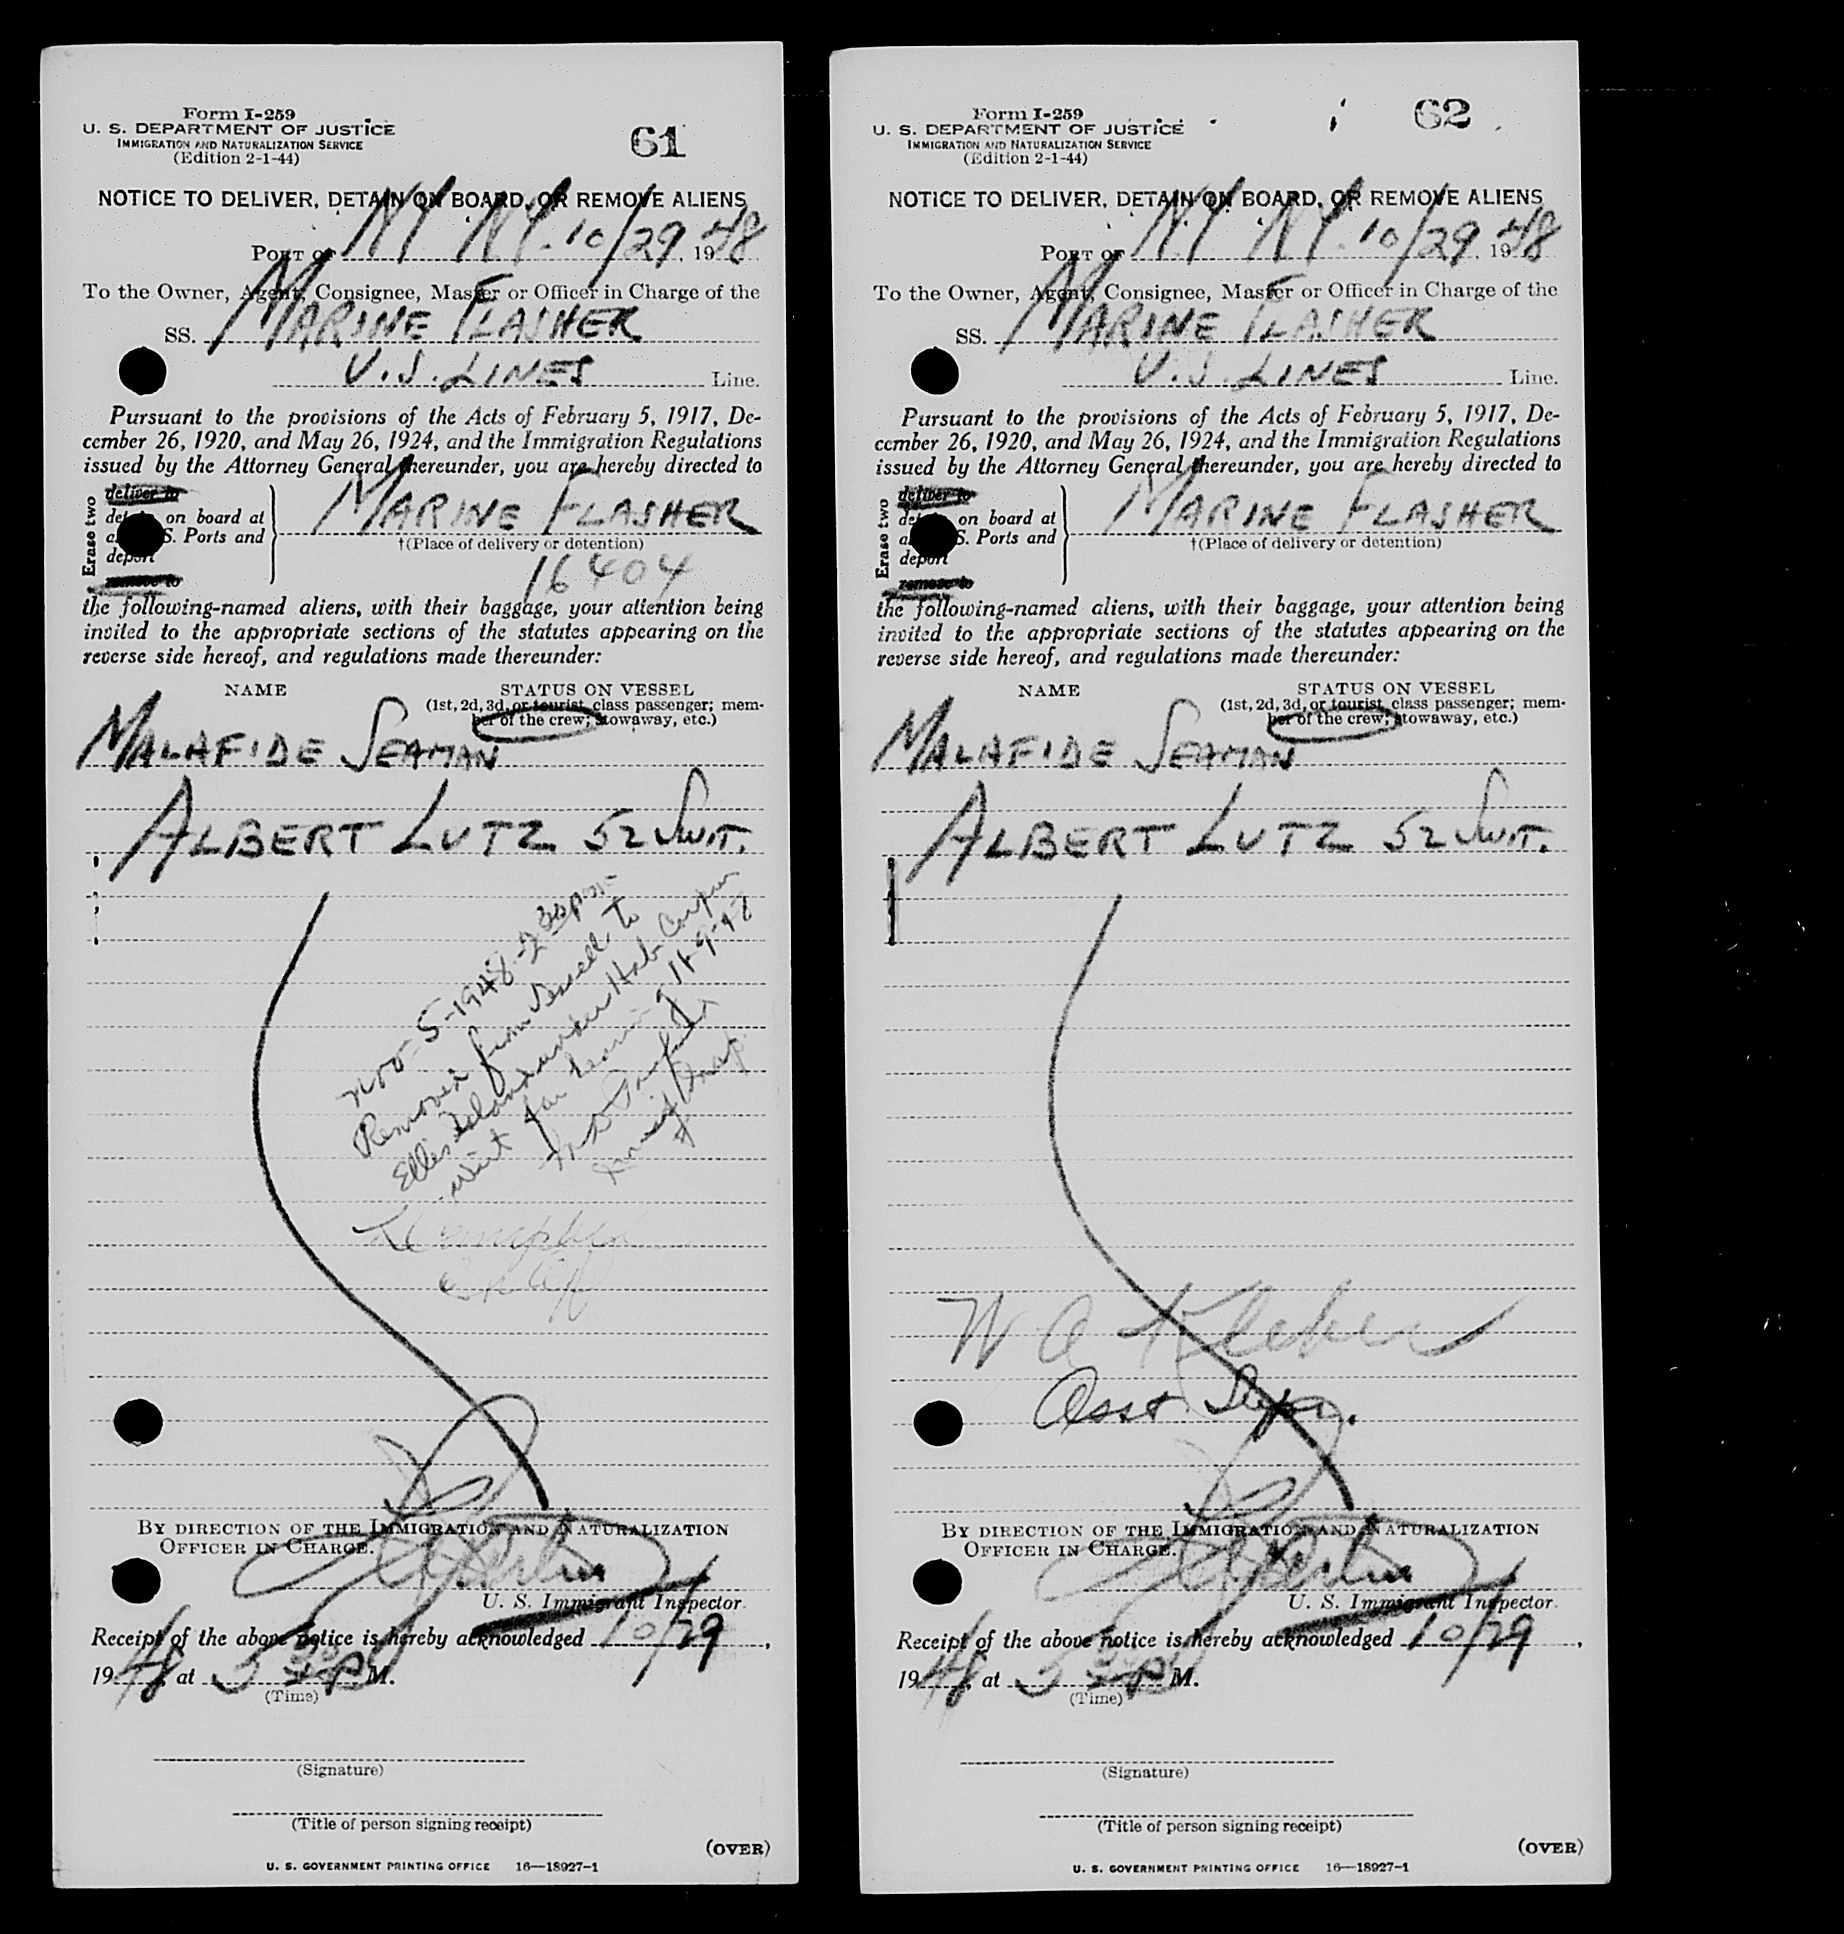 Form I-259
U. S. DEPARTMENT OF JUSTICE
IMMIGRATION AND NATURALIZATION SERVICE
(Edition 2-1-44)
61
NOTICE TO DELIVER, DETAIN ON BOARD, OR REMOVE ALIENS
PORT OF NY NY. 10/29, 1948
To the Owner, Agent, Consignee, Master or Officer in Charge of the
SS. MARINE FLASHER
U.S. LINES Line.
Pursuant to the provisions of the Acts of February 5, 1917, De-
cember 26, 1920, and May 26, 1924, and the Immigration Regulations
issued by the Attorney General thereunder, you are hereby directed to
Erase two
deliver to
on board at
S. Ports and
deport
remove to
MARINE FLASHER
†(Place of delivery or detention)
16404
the following-named aliens, with their baggage, your attention being
invited to the appropriate sections of the statutes appearing on the
reverse side hereof, and regulations made thereunder:
NAME STATUS ON VESSEL
(1st, 2d, 3d, or tourist class passenger; mem-
ber of the crew; stowaway, etc.)
MALAFIDE SEAMAN
ALBERT LUTZ 52 SWIT.
Nov-5-1948-2 30 pm
Removed from Vessel to
Ellis Island under Hab Corpus
Writ for hearing 11-9-48
BY DIRECTION OF THE IMMIGRATION AND NATURALIZATION
OFFICER IN CHARGE.
U. S. Immigrant Inspector.
Receipt of the above notice is hereby acknowledged 10/29,
1948 at 5 30 P M.
(Time)
(Signature)
(Title of person signing receipt)
(OVER)
U. S. GOVERNMENT PRINTING OFFICE 16—18927-1
Form I-259
U. S. DEPARTMENT OF JUSTICE
IMMIGRATION AND NATURALIZATION SERVICE
(Edition 2-1-44)
62
NOTICE TO DELIVER, DETAIN ON BOARD, OR REMOVE ALIENS
PORT OF N.Y NY. 10/29, 1948
To the Owner, Agent, Consignee, Master or Officer in Charge of the
SS. MARINE FLASHER
U.S. LINES Line.
Pursuant to the provisions of the Acts of February 5, 1917, De-
cember 26, 1920, and May 26, 1924, and the Immigration Regulations
issued by the Attorney General thereunder, you are hereby directed to
Erase two
deliver to
on board at
S. Ports and
deport
remove to
MARINE FLASHER
†(Place of delivery or detention)
the following-named aliens, with their baggage, your attention being
invited to the appropriate sections of the statutes appearing on the
reverse side hereof, and regulations made thereunder:
NAME STATUS ON VESSEL
(1st, 2d, 3d, or tourist class passenger; mem-
ber of the crew; stowaway, etc.)
MALAFIDE SEAMAN
ALBERT LUTZ 52 SWIT.
W A
Asst
BY DIRECTION OF THE IMMIGRATION AND NATURALIZATION
OFFICER IN CHARGE.
U. S. Immigrant Inspector.
Receipt of the above notice is hereby acknowledged 10/29,
1948 at 5 30 P M.
(Time)
(Signature)
(Title of person signing receipt)
(OVER)
U. S. GOVERNMENT PRINTING OFFICE 16—18927-1